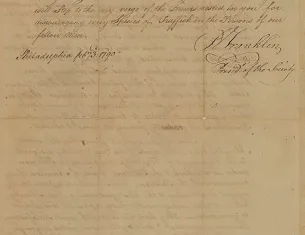 will Step to the very verge of the Powers vested in you for
discouraging every Species of Traffick in the Persons of our
fellow Men.
Philadelphia Feby 3. 1790
B. Franklin
Presidt. of the Society